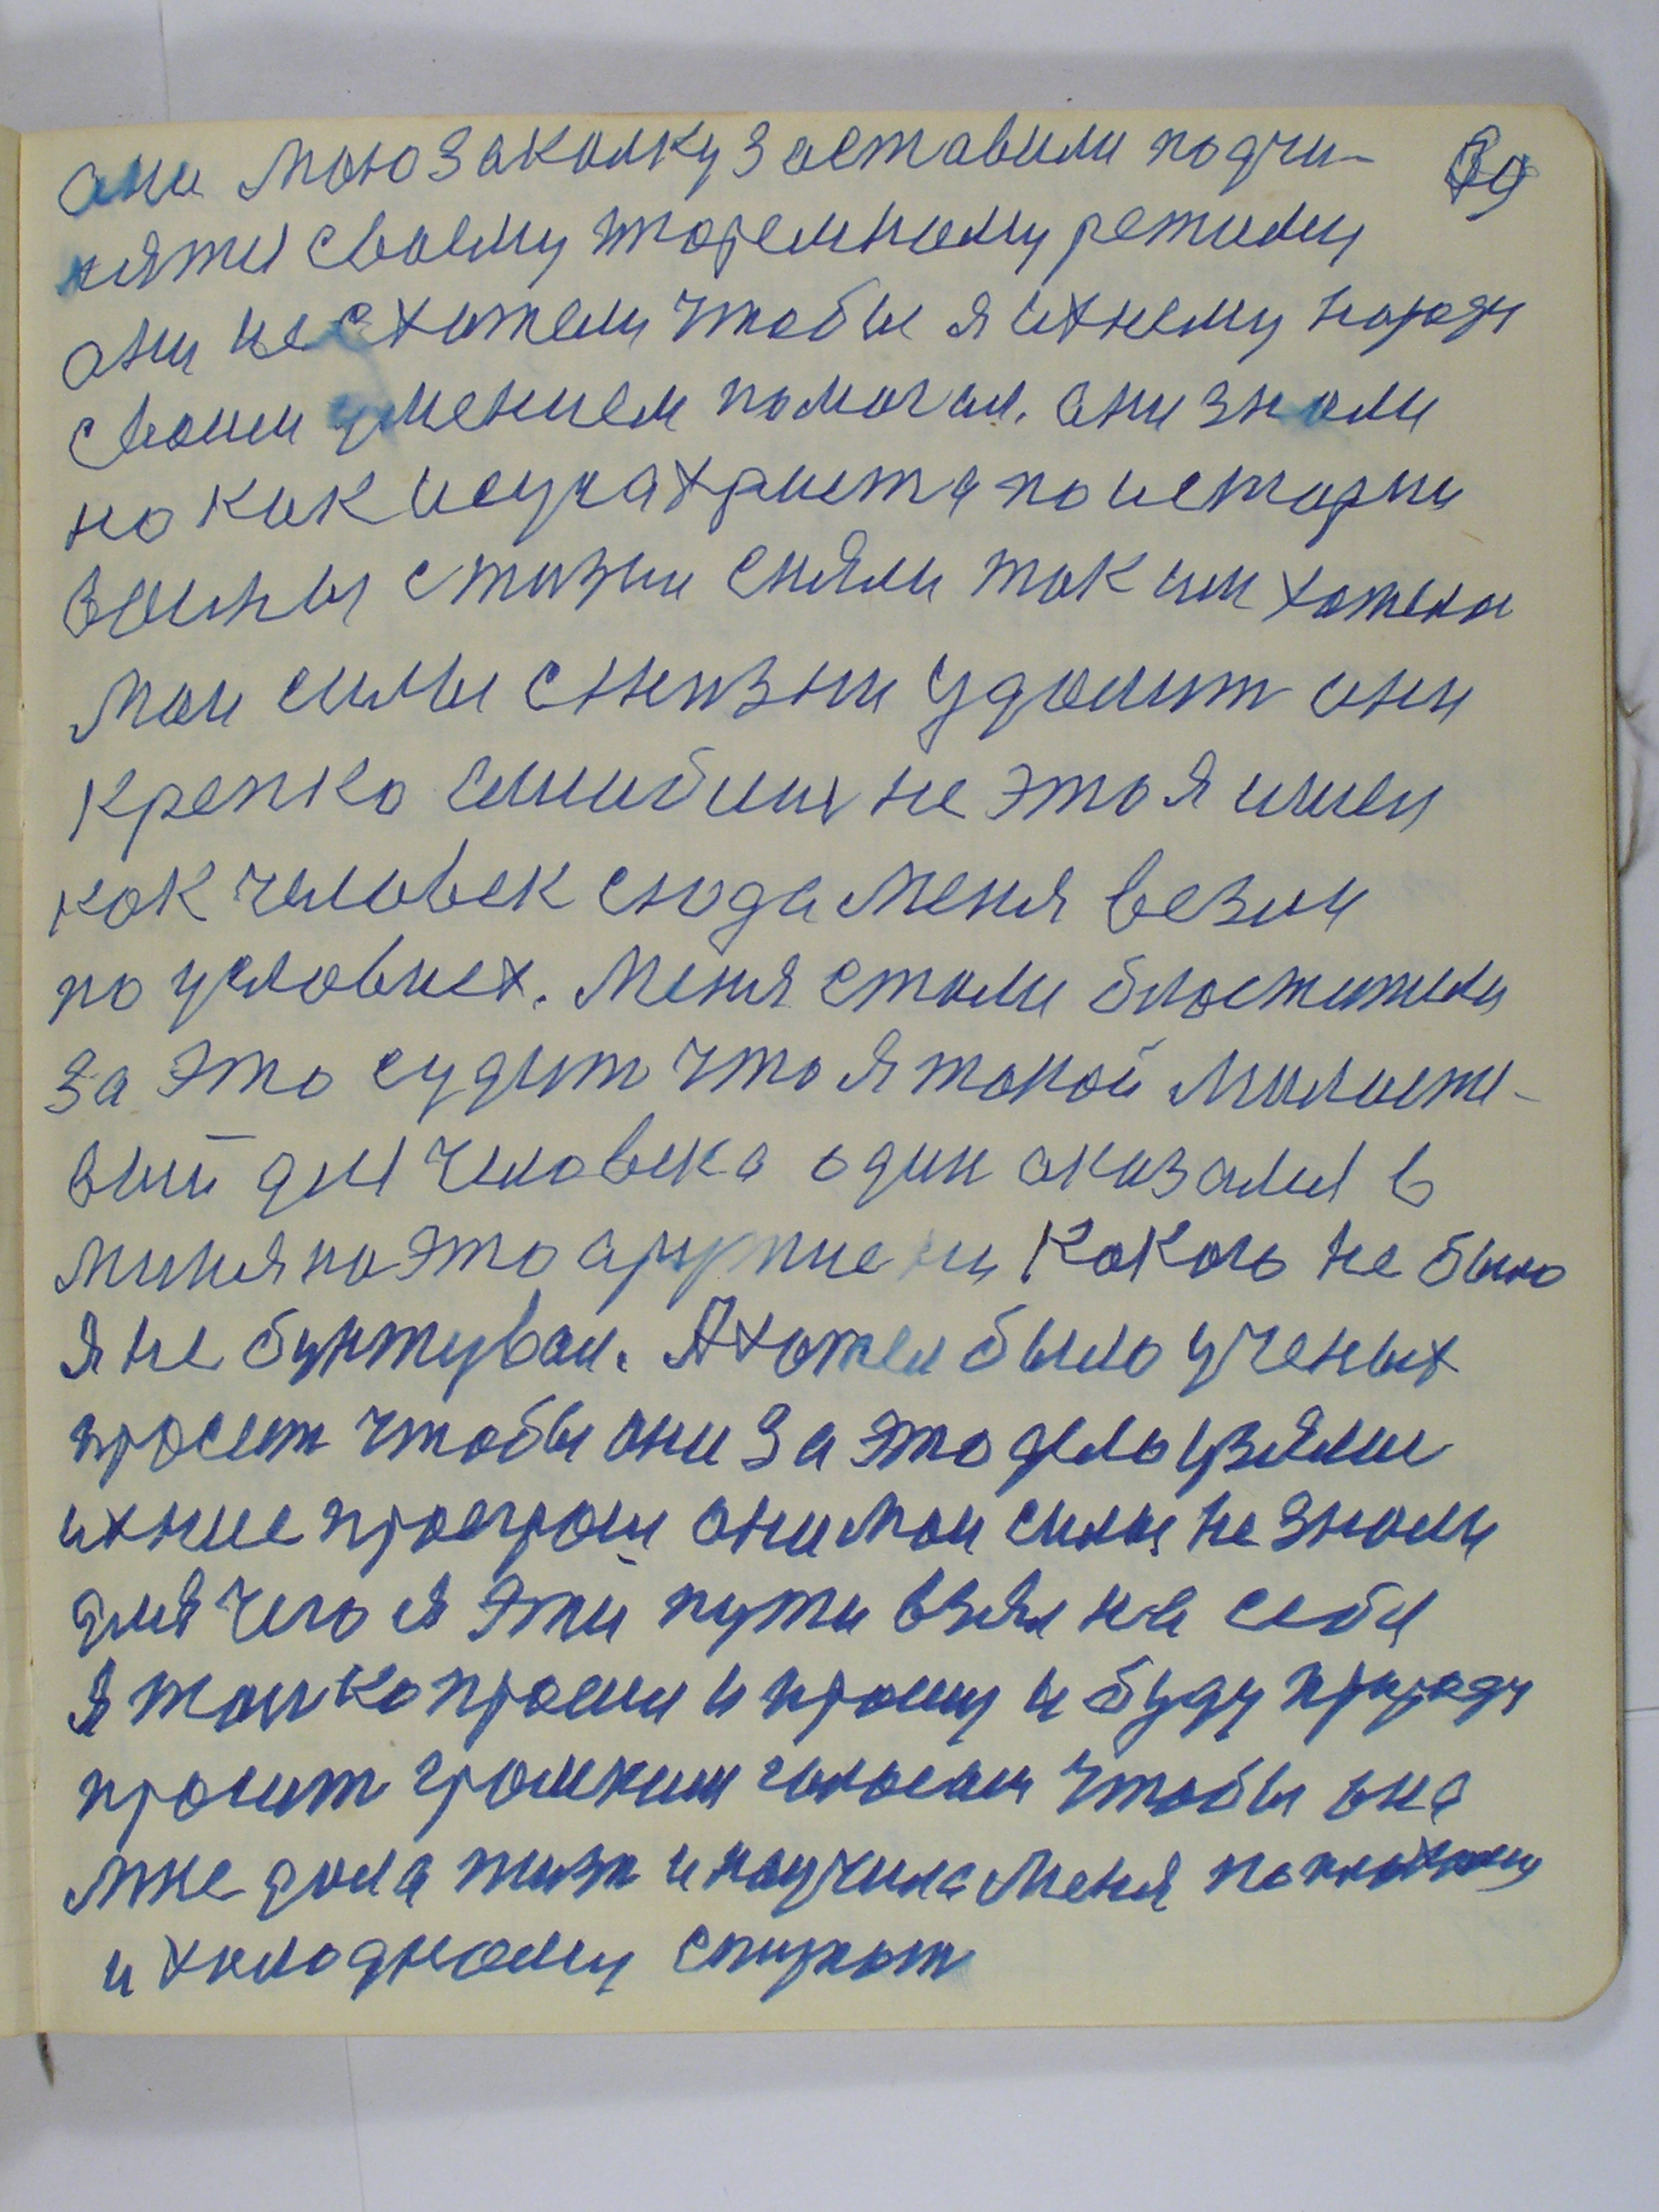 39
они мою закалку заставили подчи-
нятся своему тюремному режиму
они не схотели чтобы я ихнему народу
своим умением помогал. они знали
но как исуса христа по истории
воины с жизни сняли так им хотелося
мои силы с жизни удалит они
крепко ошиблис не это я ищу
как человек сюда меня везли
по условиех. Меня стали блюстители
за это судит что я такой милости-
вый для человека один оказался в
миня на это группие ни какого не было
я не бунтувал. Я хотел было ученых
просит чтобы они за это дело узялис
ихние просгрош они мои силы не знали
для чего я эти пути взял на себя
я только просил и прошу и буду природу
просит громким голосом чтобы она
мне дала жизн и научила меня по
и холодному